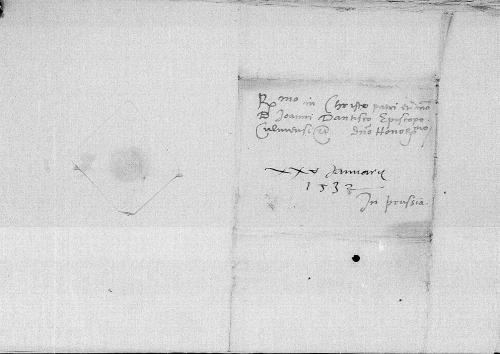 R^mo in Christo patri et d^no
D. Joanni Dantisco Episcopo
Culmensi etc d^no Honor^mo
xxv Januarij
1532
In prussia